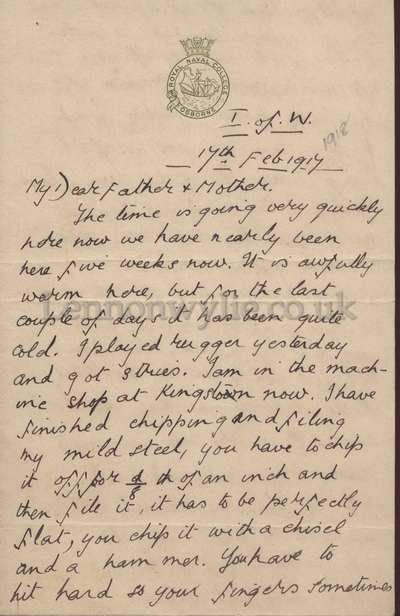 ROYAL NAVAL COLLEGE
OSBORNE
I. of. W.
1918
17th Feb. 1917
My Dear Father & Mother.
The time is going very quickly
here now we have nearly been
here five weeks now. It is awfully
warm here, but for the last
couple of days it has been quite
cold. I played rugger yesterday
and got 3 tries. I am in the mach-
ine shop at Kingstown now. I have
finished chipping and filing
my mild steel, you have to chip
it off for 1/8 th of an inch and
then file it, it has to be perfectly
flat, you chip it with a chisel
and a hammer. You have to
hit hard so your fingers sometimes
Lennonwylie.co.uk